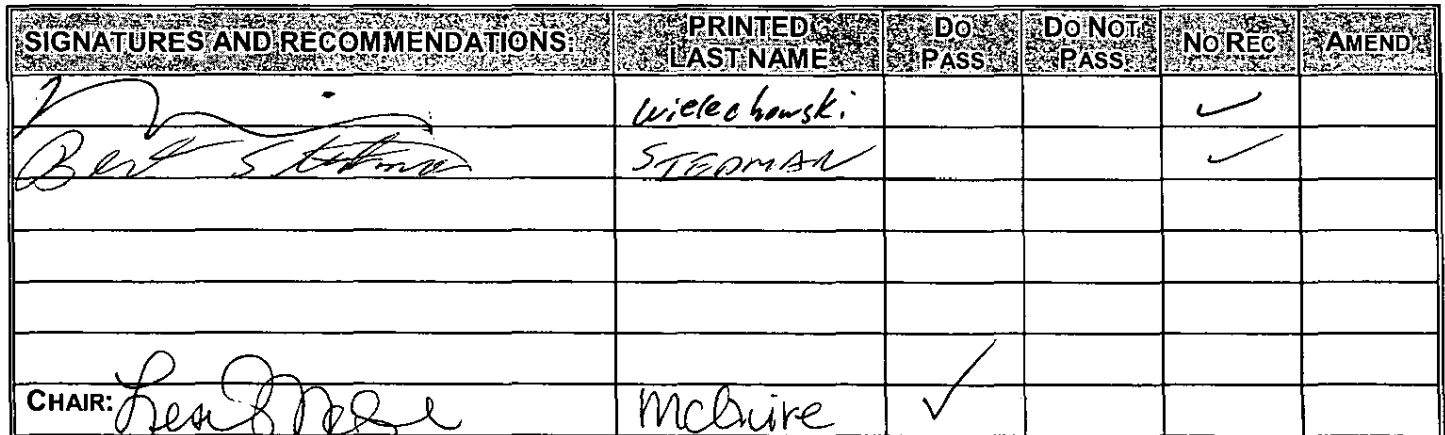 SIGNATURES AND RECOMMENDATIONS: PRINTED LAST NAME DO PASS DO NOT PASS NO REC AMEND
Wielechowski ✓
Bert Stedman STEDMAN ✓
CHAIR: McGuire ✓